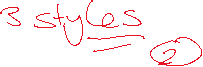 3 styles
2